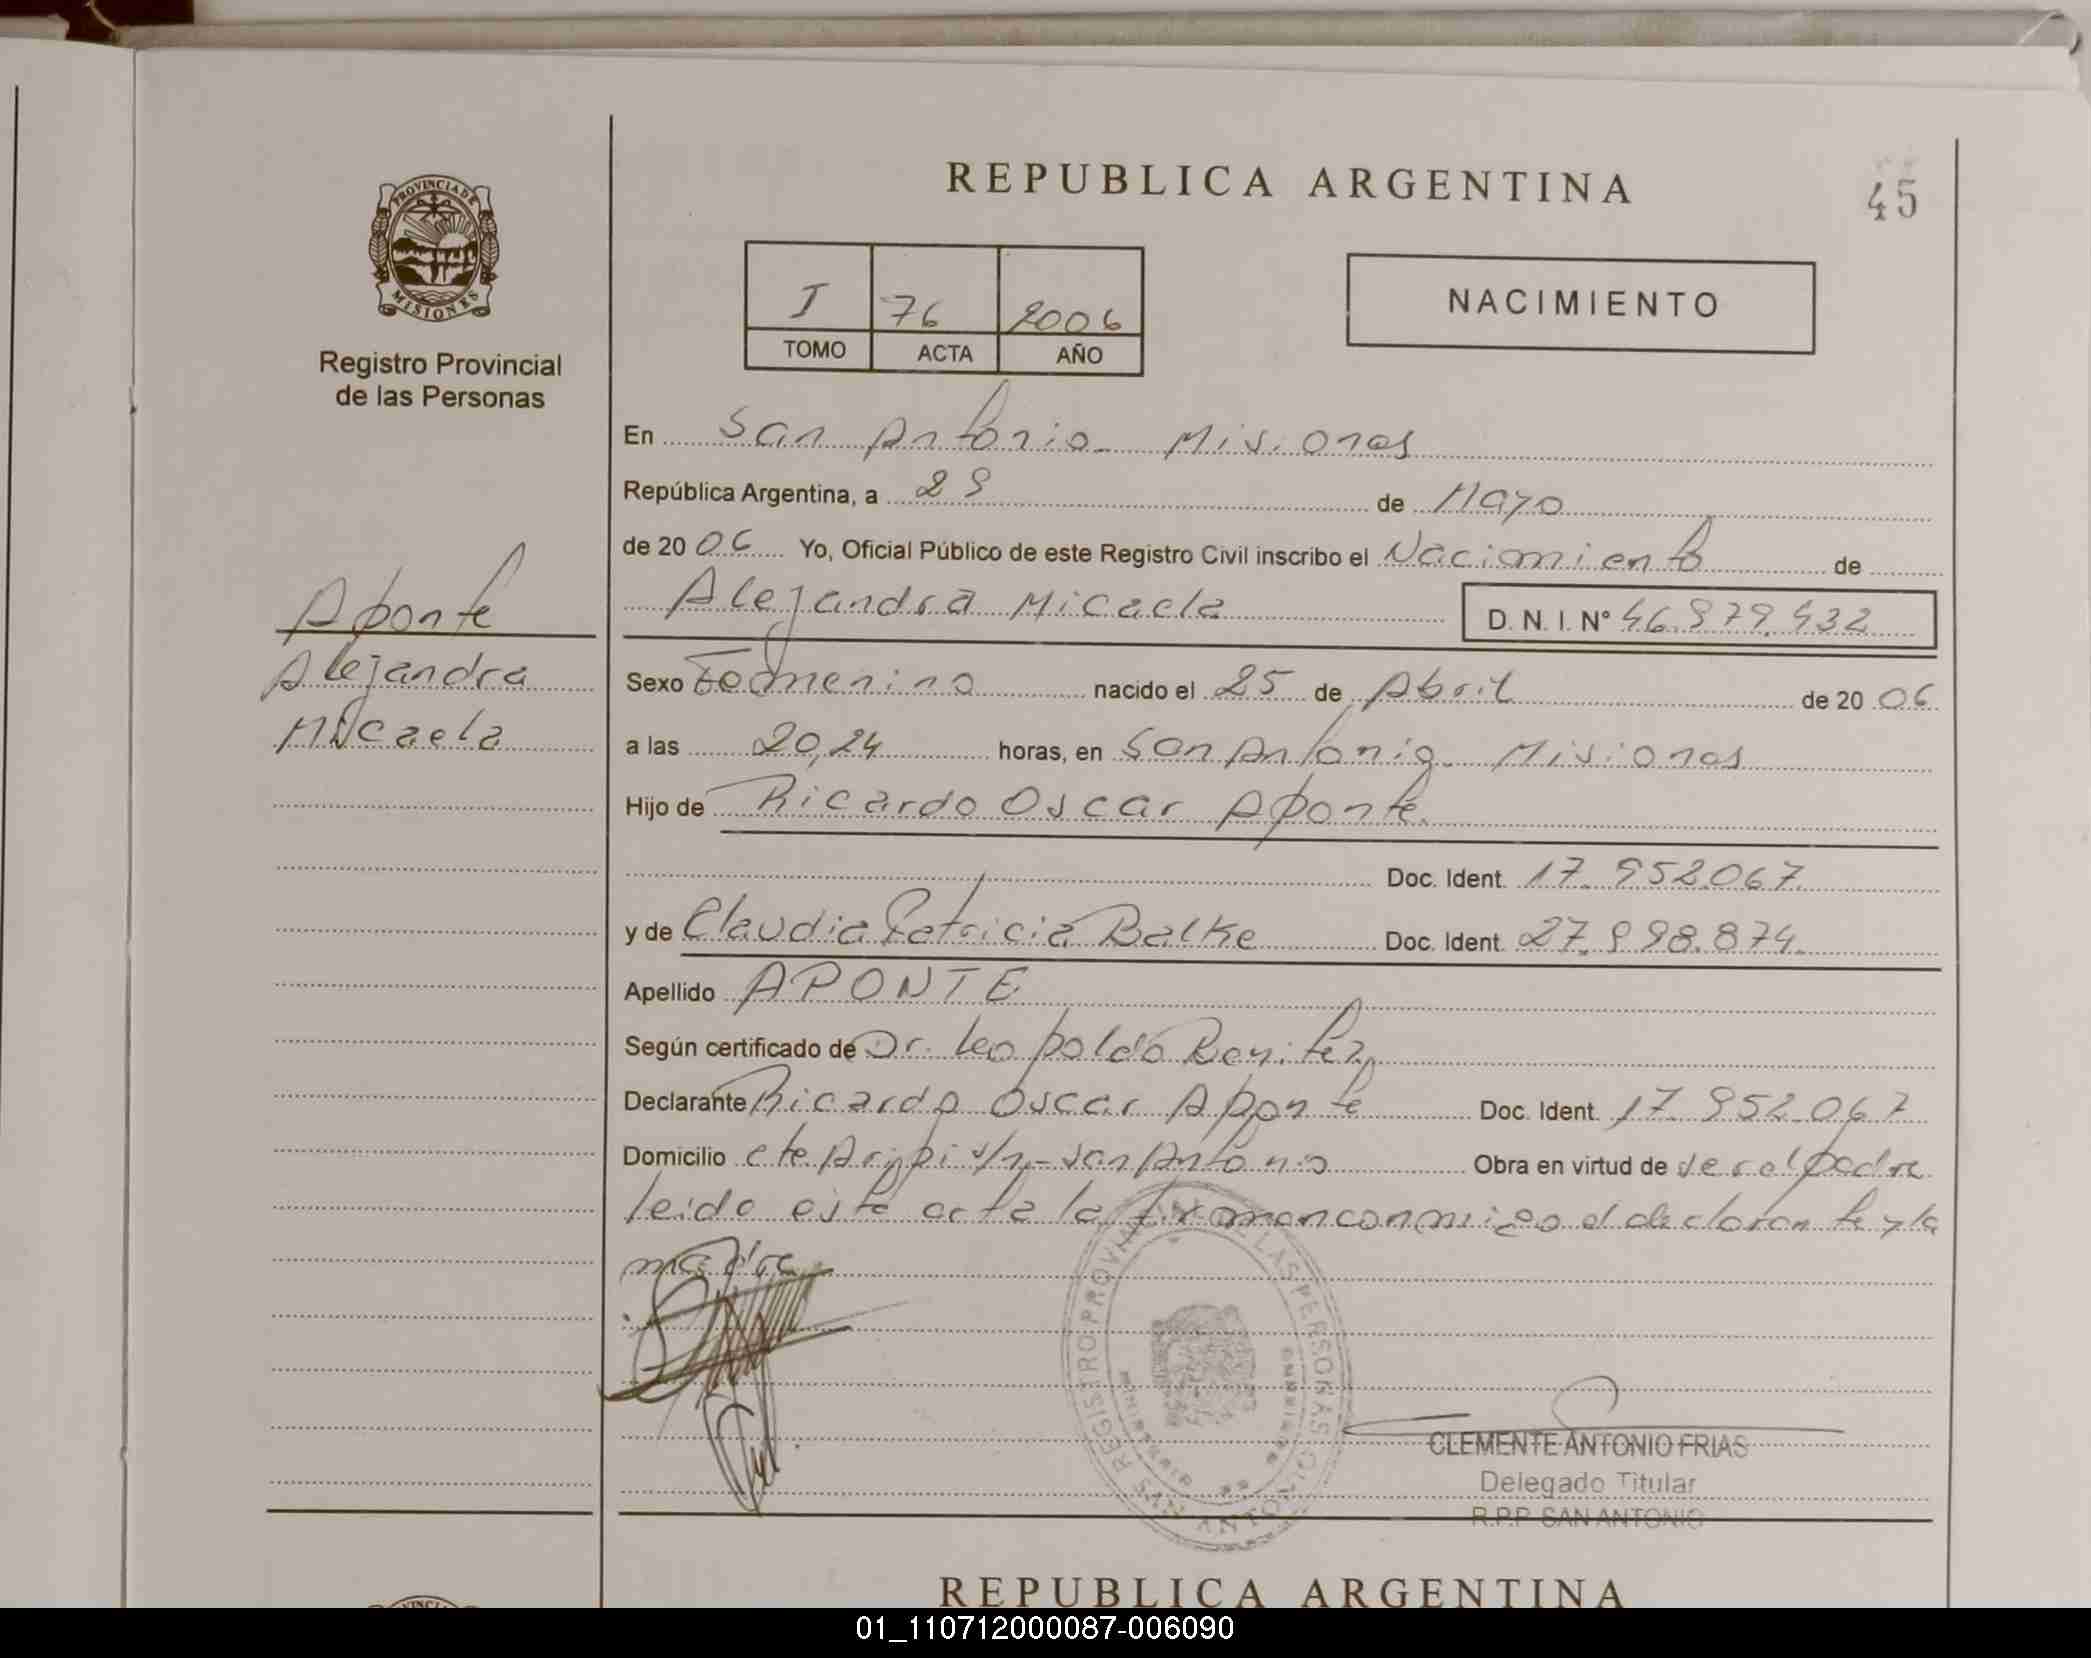 PROVINCIA DE
MISIONES
Registro Provincial
de las Personas
REPUBLICA ARGENTINA
45
I 76 2006
TOMO ACTA AÑO
NACIMIENTO
En San Antonio - Misiones
República Argentina, a 29 de Mayo
de 20 06 Yo, Oficial Público de este Registro Civil inscribo el Nacimiento de
Alejandra Micaela D. N. I. Nº 46.979.432
Aponte
Alejandra
Micaela
Sexo Femenino nacido el 25 de Abril de 20 06
a las 20,24 horas, en San Antonio - Misiones
Hijo de Ricardo Oscar Aponte
Doc. Ident. 17.952.067
y de Claudia Patricia Balke Doc. Ident. 27.998.874
Apellido APONTE
Según certificado de Dr. Leopoldo Benitez
Declarante Ricardo Oscar Aponte Doc. Ident. 17.952.067
Domicilio s/n - San Antonio Obra en virtud de ser el padre
leido este acta la firman conmigo el declarante y la
madre
REGISTRO PROVINCIAL DE LAS PERSONAS
SAN ANTONIO
CLEMENTE ANTONIO FRIAS
Delegado Titular
R.P.P. SAN ANTONIO
REPUBLICA ARGENTINA
01_110712000087-006090